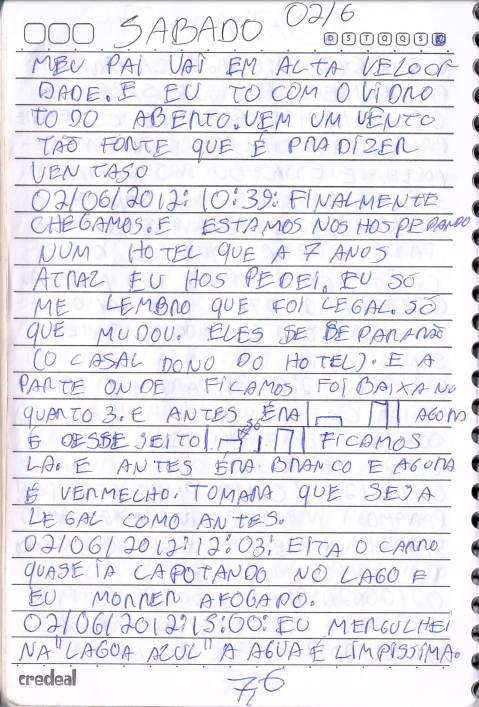 SABADO 02/6
D S T Q Q S S
MEU PAI VAI EM ALTA VELOCI
DADE. E EU TO COM O VIDRO
TODO ABERTO. VEM UM VENTO
TÃO FORTE QUE É PRA DIZER
VENTASO
02/06/2012: 10:39: FINALMENTE
CHEGAMOS. E ESTAMOS NOS HOSPEDANDO
NUM HOTEL QUE A 7 ANOS
ATRAZ EU HOSPEDEI. EU SÓ
ME LEMBRO QUE FOI LEGAL. SÓ
QUE MUDOU. ELES SE SEPARARÃO
(O CASAL DONO DO HOTEL). E A
PARTE ONDE FICAMOS. FOI BAIXA NO
QUARTO 3. E ANTES ÉRA AGORA
É DESSE JEITO 36 FICAMOS
LA. E ANTES ÉRA BRANCO E AGORA
É VERMELHO. TOMARA QUE SEJA
LEGAL COMO ANTES.
02/06/2012: 12:03: EITA O CARRO
QUASE IA CAPOTANDO NO LAGO E
EU MORRER AFOGADO.
02/06/2012: 15:00: EU MERGULHEI
NA "LAGOA AZUL" A AGUA É LIMPISSIMA.
credeal
76